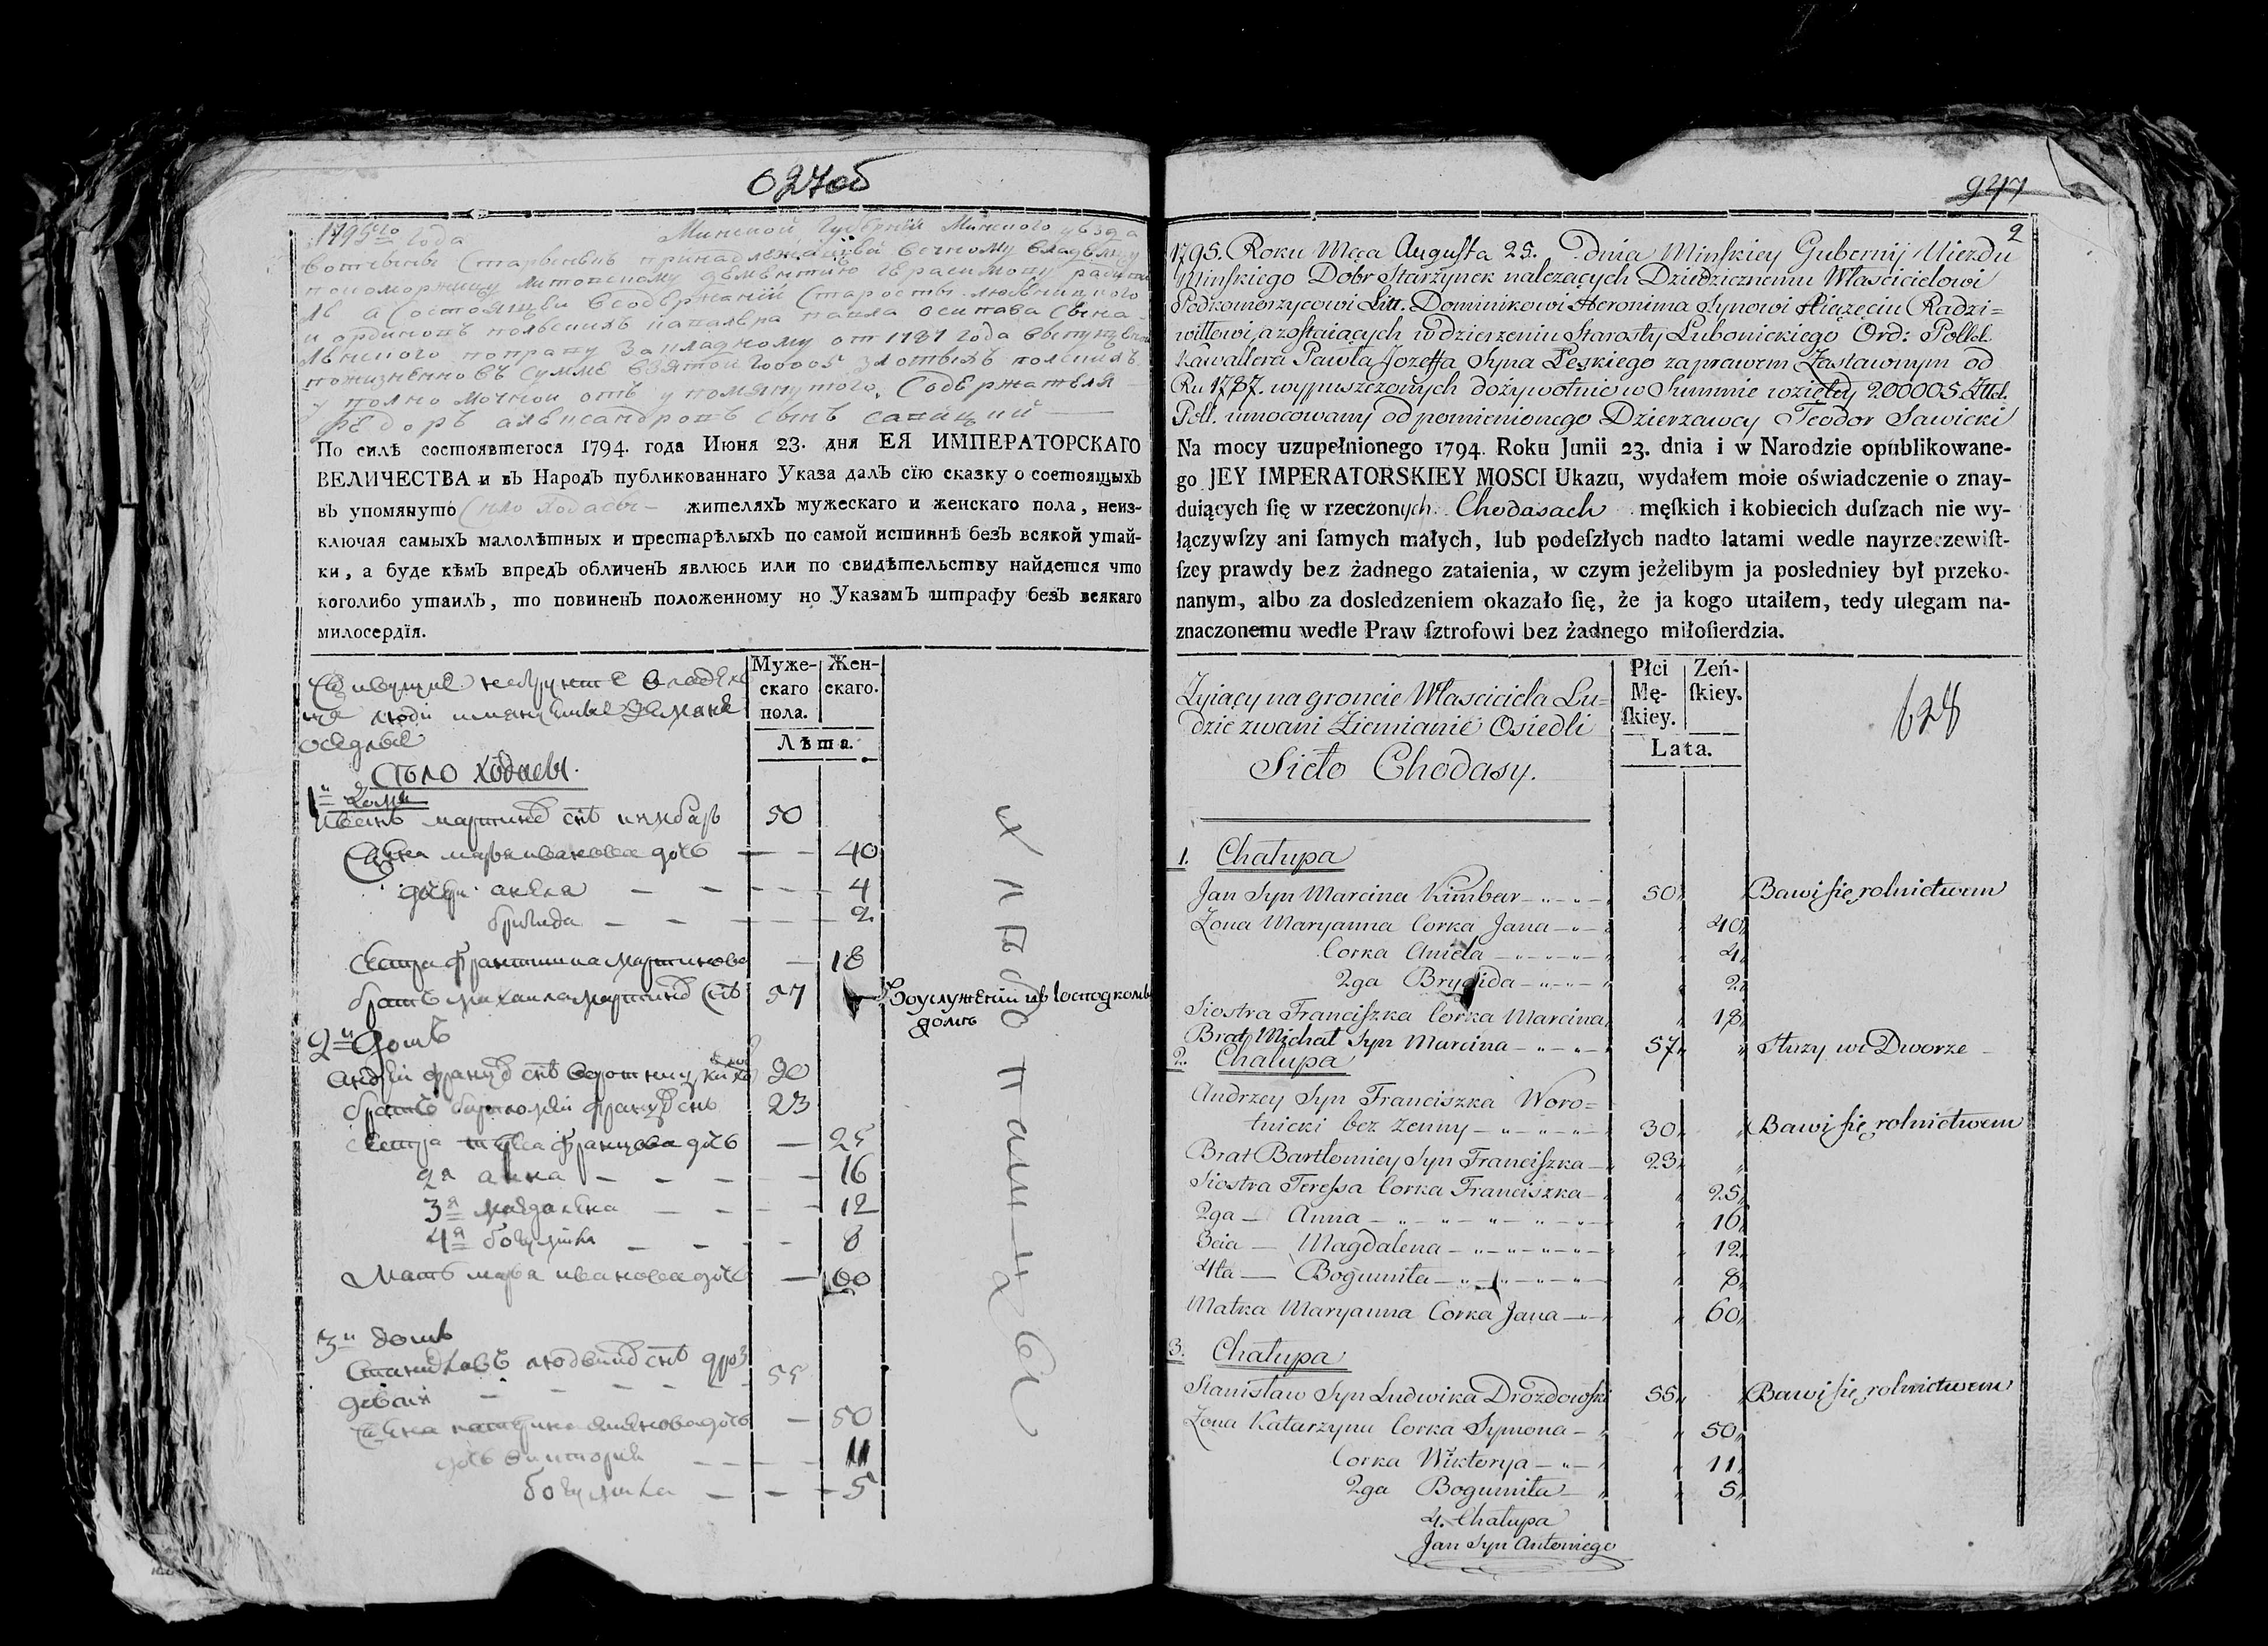 627об
1795го года Минской Губерніи Минского уезда
вотчины Старынокъ принадлежащей вечному владелцу
По силѣ состоявшегося 1794. года Июня 23. дня ЕЯ ИМПЕРАТОРСКАГО
ВЕЛИЧЕСТВА и въ Народъ публикованнаго Указа далъ сїю сказку о состоящыхъ
въ упомянуто Село Ходасы жителяхъ мужескаго и женскаго пола, неиз-
ключая самыхъ малолѣтныхъ и престарѣлыхъ по самой истиннѣ безъ всякой утай-
ки, а буде кѣмъ впредъ обличенъ явлюсь или по свидѣтельству найдется что
коголибо утаилъ, то повиненъ положенному по Указамъ штрафу безъ всякаго
милосердїя.
Муже-скаго пола. Жен-скаго.
Лѣта.
оседлые
Село Ходасы.
1й домъ
Иванъ мартинов снъ кимбаръ 50
Жена марья иванова дочь — — 40
дочери анеля — — — — 4
бригида — — — — 2
Сестра францишка мартинова — 18
братъ михаила мартинов снъ 57 Воуслуженіи в господкомъ
домѣ
2й домъ
андрей францов снъ воротницкий 30
братъ бартломей францов снъ 23
Сестра тереса францова дочь — 25
2я анна — — — — 16
3я магдалена — — — — 12
4я богумила — — — 8
Мать марья иванова дочь — 60
3й домъ
Станиславъ людвиков снъ дроз
довский — — — — — 55
Жена катерина дочь — 50
дочь виктория — — — — 11
богумила — — — 5
хлебопашцы
947
2
1795. Roku Mca Augusta 25. dnia Minskiey Gubernij Uiezdu
Minskiego Dobr Starzynek nalezących Dziedzicznemu Właścicielowi
Podkomorzycowi Litt. Dominikowi Heronima Synowi Xiązęciu Radzi=
wiłłowi, a zostaiących w dzierzeniu Starosty Lubonickiego Ord: Polld.
Kawallera Pawła Jozeffa Syna Peskiego za prawem Zastawnym od
Ru 1787. wypuszczonych dożywotnie w Summie wziętey 200005 Złłd.
Poll. umocowany od pomienionego Dzierzawcy Teodor Sawicki
Na mocy uzupełnionego 1794. Roku Junii 23. dnia i w Narodzie opublikowane-
go JEY IMPERATORSKIEY MOSCI Ukazu, wydałem moie oświadczenie o znay-
duiących ſię w rzeczonych Chodasach męſkich i kobiecich duſzach nie wy-
łączywſzy ani ſamych małych, lub podeſzłych nadto latami wedle nayrzeczewiſt-
ſzey prawdy bez żadnego zataienia, w czym jeżelibym ja posledniey był przeko-
nanym, albo za dosledzeniem okazało ſię, że ja kogo utaiłem, tedy ulegam na-
znaczonemu wedle Praw ſztrofowi bez żadnego miłoſierdzia.
Płci Mę-ſkiey. Zeń-ſkiey.
Lata.
Zyiący na groncie Właściciela Lu=
dzie zwani Ziemianie Osiedli
Sioło Chodasy.
628
1. Chałupa
Jan Syn Marcina Kimbar 50 Bawi ſię rolnictwem
Zona Maryanna Corka Jana 40
Corka Aniela 4
2ga Brygida 2
Siostra Franciſzka Corka Marcina 18
Brat Michał Syn Marcina 57 Służy we Dworze
2. Chałupa
Andrzey Syn Franciszka Woro=
tnicki bez Zenny 30 Bawi ſię rolnictwem
Brat Bartłomiey Syn Franciſzka 23
Siostra Teressa Corka Franciszka 25
2ga — Anna 16
3cia — Magdalena 12
4ta — Bogumiła 8
Matka Maryanna Corka Jana 60
3. Chałupa
Stanisław Syn Ludwika Drozdowski 55 Bawi ſię rolnictwem
Zona Katarzyna Corka Symona 50
Corka Wiktorya 11
2ga Bogumiła 5
4. Chałupa
Jan Syn Antoniego